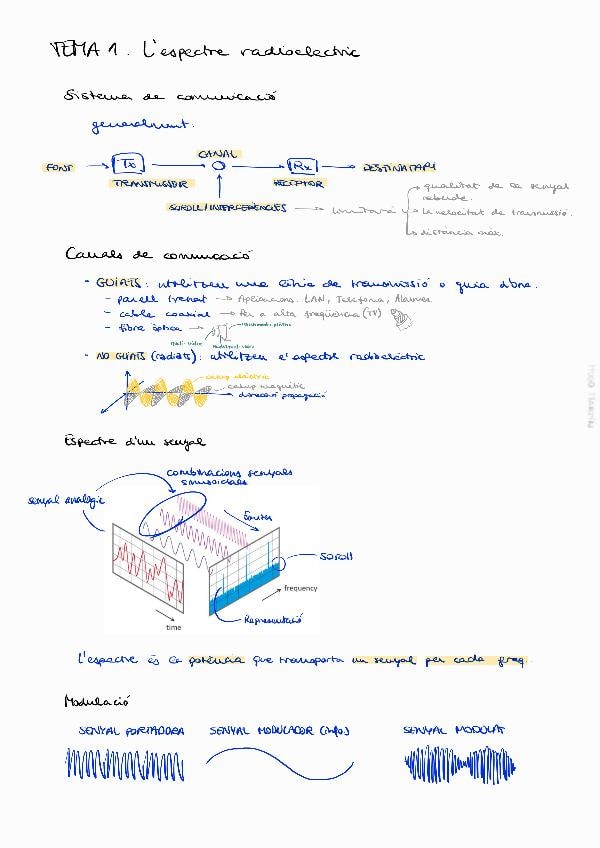 TEMA 1. L'espectre radioelectric
Sistema de comunicació
generalment.
FONT
Tx
CANAL
Rx
DESTINATARI
TRANSMISSOR
RECEPTOR
SOROLL/INTERFERÈNCIES
limitarà
qualitat de la senyal
rebuda.
la velocitat de transmissió.
distància màx.
Canals de comunicació
- GUIATS: utilitzen una línia de transmissió o guia d'ona.
- parell trenat → Aplicacions: LAN, Telefonia, Alarmes.
- cable coaxial → Per a alta freqüència (TV)
- fibra òptica →
- NO GUIATS (radiats): utilitzen l'espectre radioelèctric
camp elèctric
camp magnètic
direcció propagació
Espectre d'un senyal
combinacions senyals
sinusoidals
senyal analògic
Fourier
soroll
frequency
Representació
time
L'espectre és la potència que transporta un senyal per cada freq.
Modulació
SENYAL PORTADORA
SENYAL MODULADOR (info)
SENYAL MODULAT